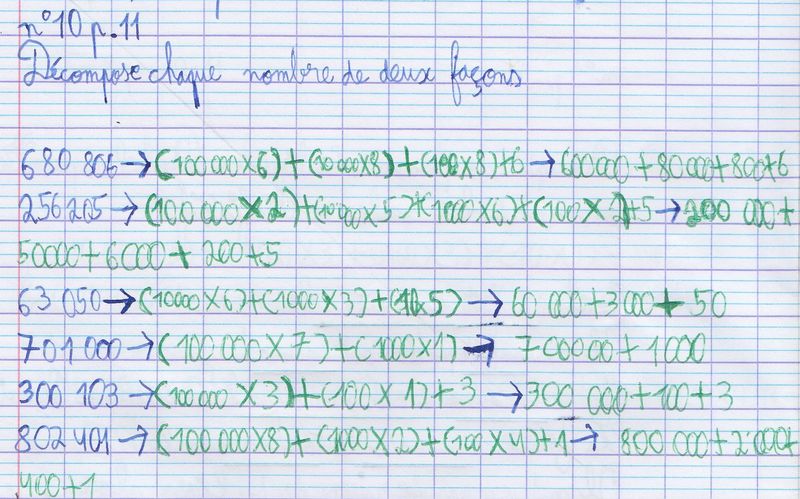 n°10 p.11
Décompose chaque nombre de deux façons
680 806 → (100 000 x 6) + (10 000 x 8) + (100 x 8) + 6 → 600 000 + 80 000 + 800 + 6
256 265 → (100 000 x 2) + (10 000 x 5) + (1000 x 6) + (100 x 2) + 5 → 200 000 +
50000 + 6000 + 200 + 5
63 050 → (10000 x 6) + (1000 x 3) + (10 x 5) → 60 000 + 3 000 + 50
701 000 → (100 000 x 7) + (1000 x 1) → 700000 + 1000
300 103 → (100 000 x 3) + (100 x 1) + 3 → 300 000 + 100 + 3
802 401 → (100 000 x 8) + (1000 x 2) + (100 x 4) + 1 → 800 000 + 2 000 +
400 + 1